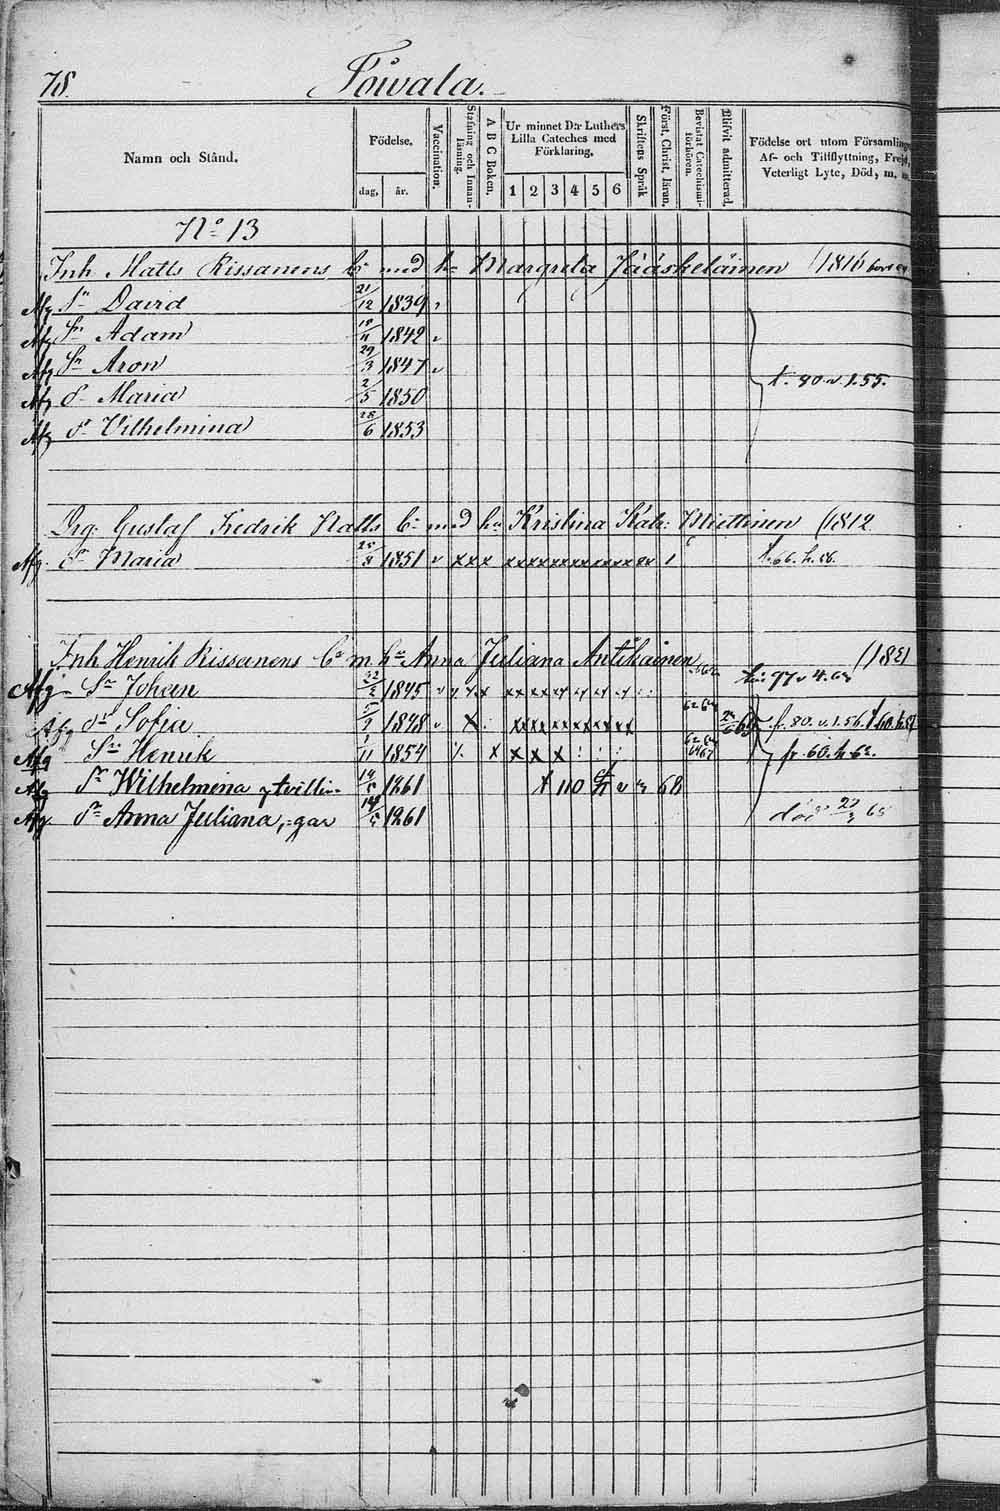 78.
Towala.
Namn och Stånd.
Födelse.
dag, år.
Vaccination.
Stafning och Innanläsning.
A B C Boken.
Ur minnet D:r Luthers Lilla Cateches med Förklaring.
1 2 3 4 5 6
Skriftens Språk
Först. Christ. läran.
Bevistat Catechismiförhören.
Blifvit admitterad.
Födelse ort utom Församlingen
Af- och Tillflyttning, Frejd,
Veterligt Lyte, Död, m. m.
No 13
Inh Matts Rissanens bn med hu Margreta Jääskeläinen (1816
Afg Sn David 21/12 1839 v
Afg Sn Adam 1842 v
Afg Sn Aron 29/3 1847 v
Afg dr Maria 2/5 1850
Afg dr Vilhelmina 6 1853
t. 80 v. 1.55.
Drg. Gustaf Fredrik Halls bn med hu Kristina Kata: Miettinen (1812
Afg. dr Maria 8 1851 v x x x x x x x x x x x x x x 1
Inh Henrik Rissanens bn m. hu Anna Juliana Antikainen (1821
Afg Sn Johan 1845 v
Afg dr Sofia 1848 v x 65 fr. 80. v. 1.56.
Afg Sn Henrik 11 1854 x x x x fr. 60. h. 62.
Afg dr Wilhelmina tvillin- 14/5 1861 68
Afg. dr Anna Juliana, =gar 14/5 1861 död 65